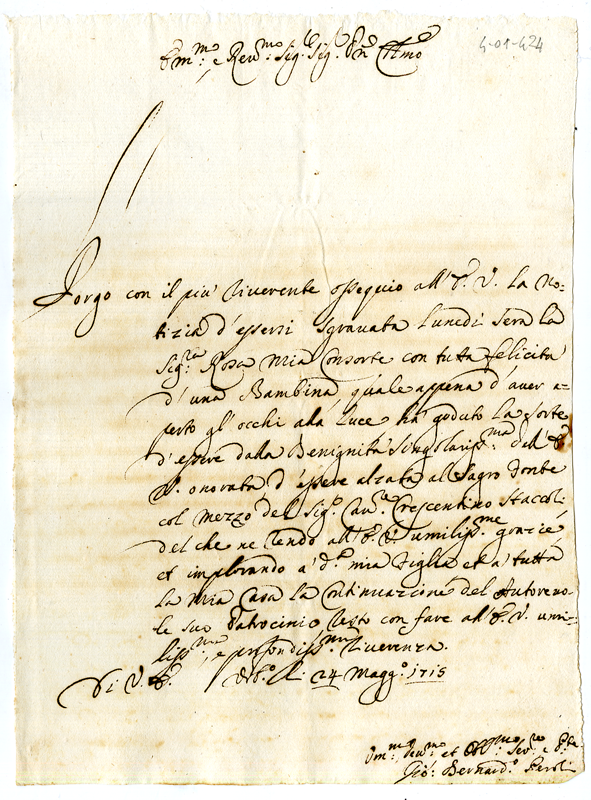 4-01-424
Em.mo e Rev.mo Sig.r Sig.r P.ron Col.mo
Porgo con il più riverente ossequio all'E. V. la no=
tizia d'essersi sgravata Lunedi sera la
Sig.ra Rosa mia Consorte con tutta felicità
d'una Bambina, quale appena d'aver a=
perto gl'occhi alla Luce ha goduto la sorte
d'essere dalla Benignità Singolariss.ma dell'E.
V. onorata d'essere alzata al Sagro Fonte
col mezzo del Sig.r Cav.re Crescentino Staccoli
del che ne rendo all'E. V. umiliss.me grazie
et implorando a d.a mia Figlia et a tutta
la mia Casa la Continuazione del Autorevo=
le suo Patrocinio resto con fare all'E. V. umi=
liss.ma, e profondiss.ma riverenza.
Di V. E. Urb.o li 24 Magg.o 1715
Um.mo Dev.mo et Obl.mo Ser.re e
Gio: Bernard.o